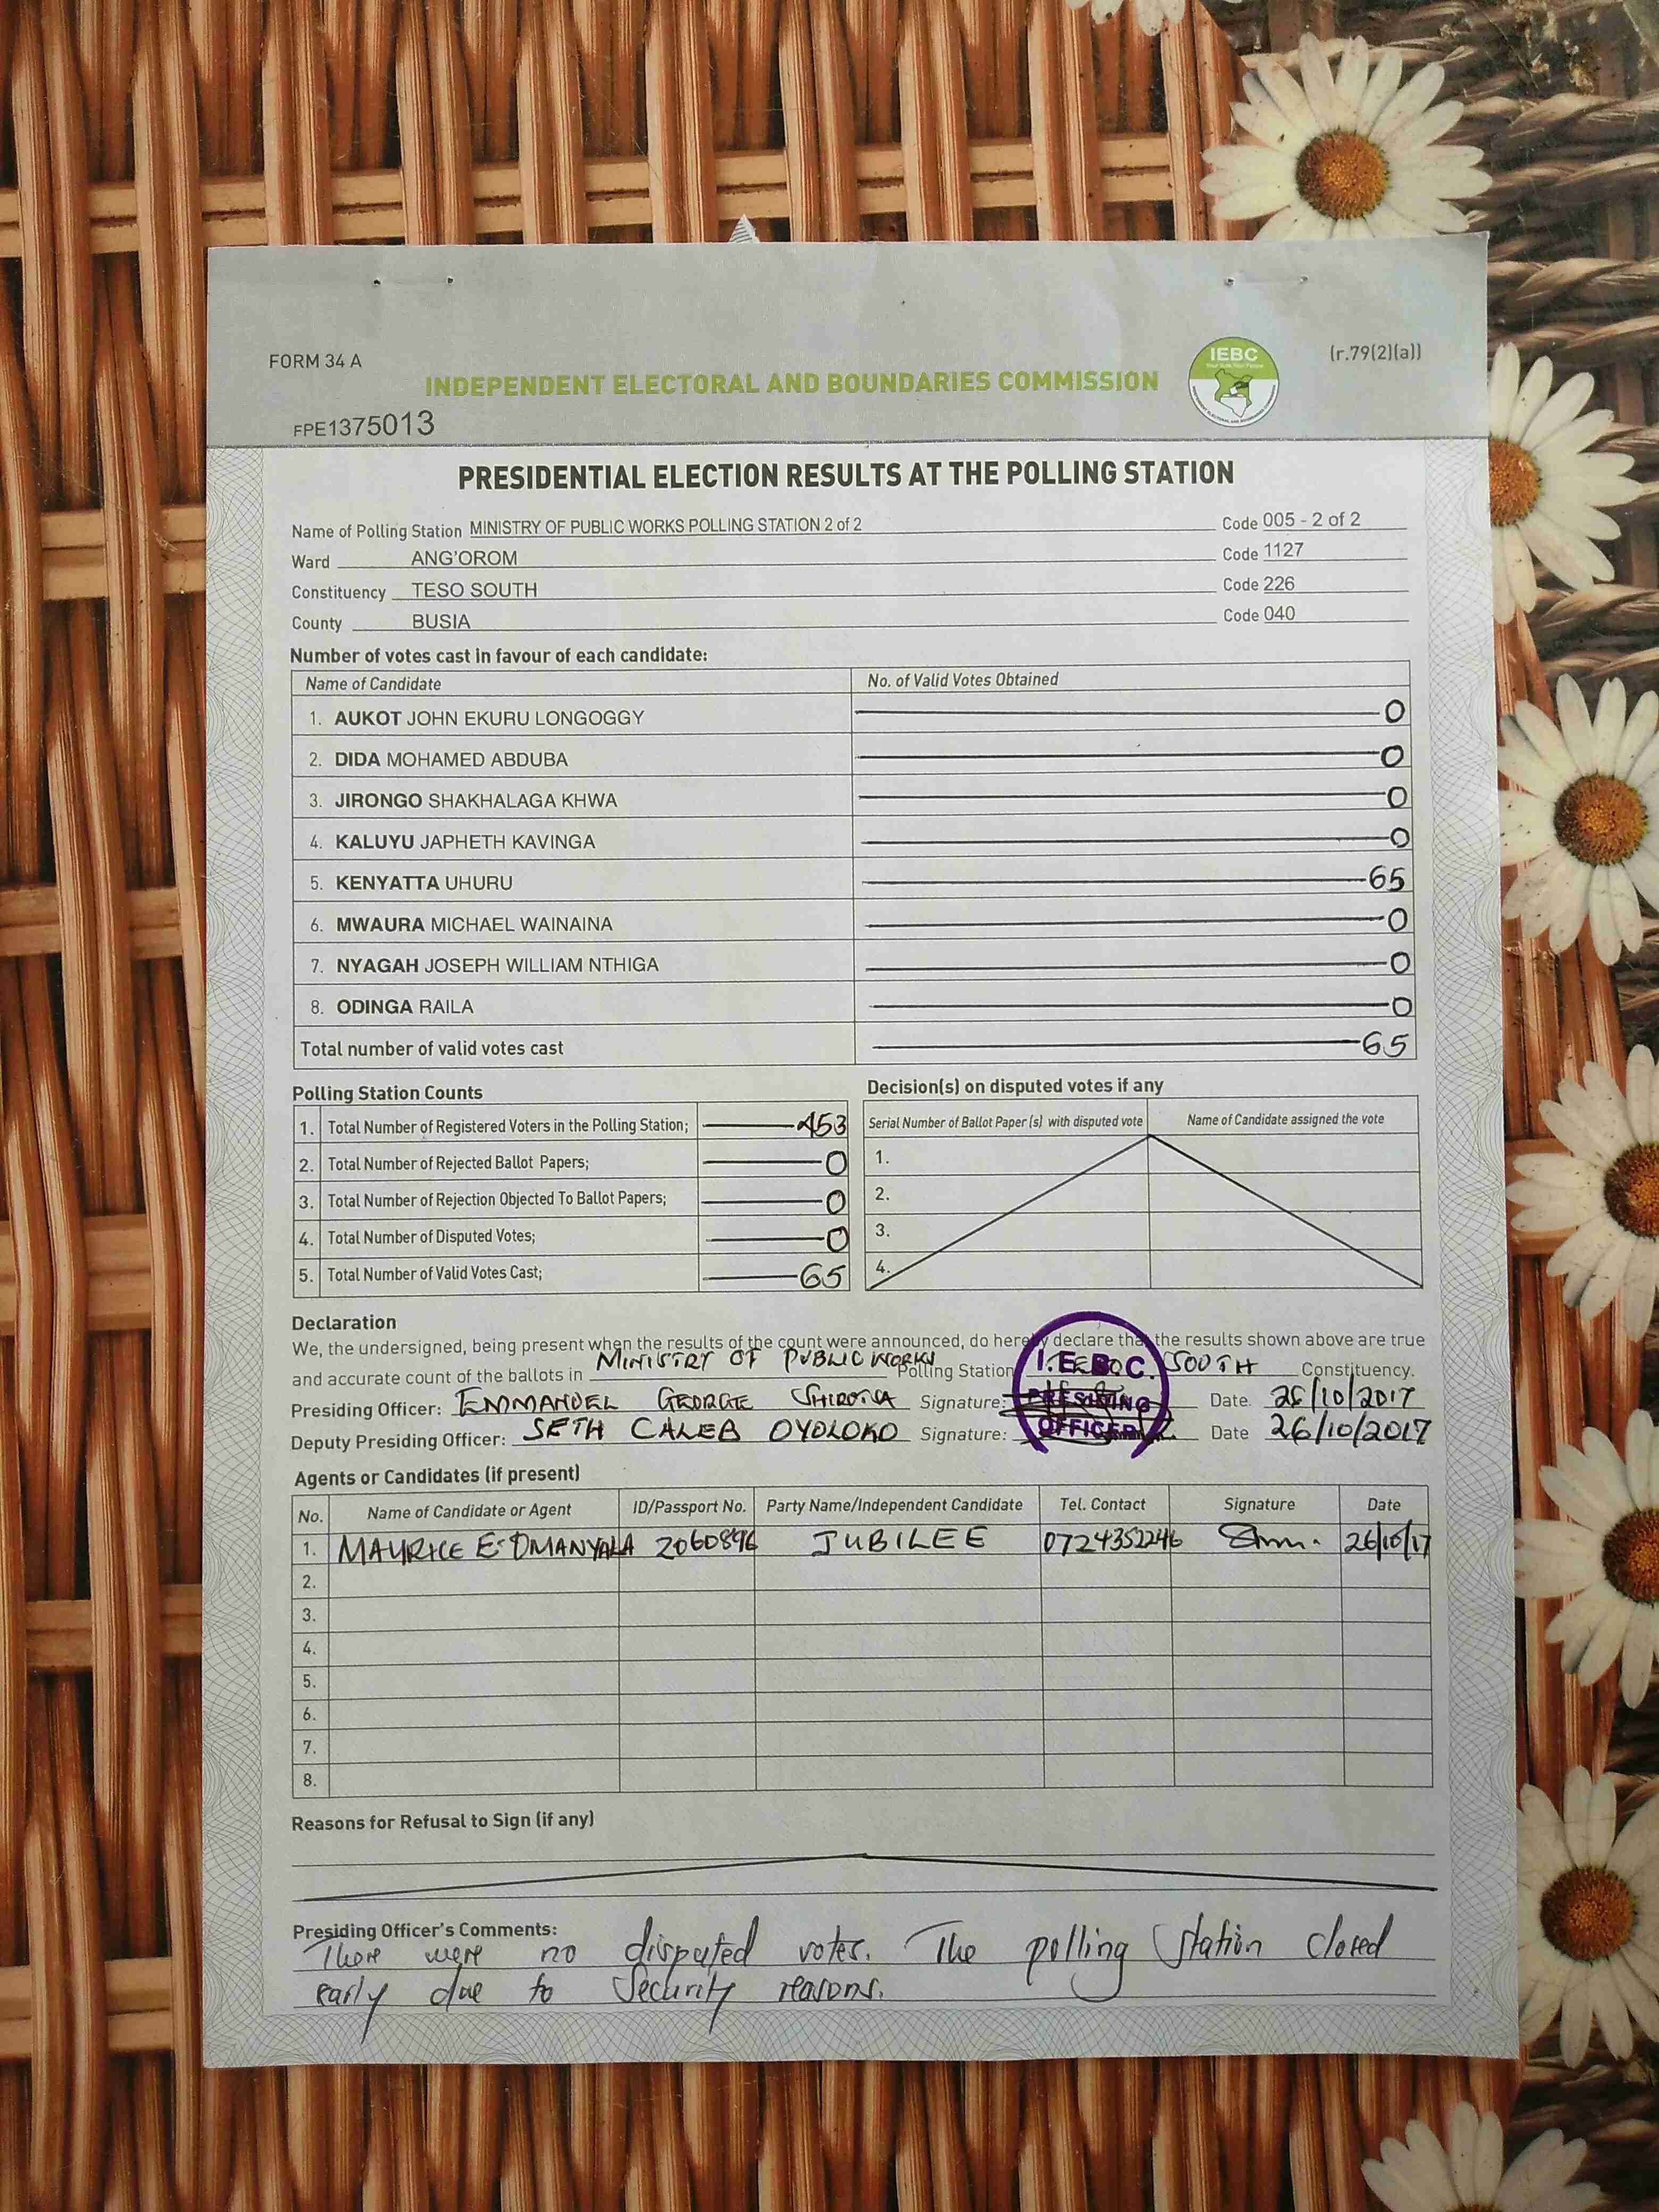 FORM 34 A
IEBC
(r.79(2)(a))
INDEPENDENT ELECTORAL AND BOUNDARIES COMMISSION
FPE1375013
PRESIDENTIAL ELECTION RESULTS AT THE POLLING STATION
Name of Polling Station MINISTRY OF PUBLIC WORKS POLLING STATION 2 of 2 Code 005 - 2 of 2
Ward ANG'OROM Code 1127
Constituency TESO SOUTH Code 226
County BUSIA Code 040
Number of votes cast in favour of each candidate:
Name of Candidate No. of Valid Votes Obtained
1. AUKOT JOHN EKURU LONGOGGY 0
2. DIDA MOHAMED ABDUBA 0
3. JIRONGO SHAKHALAGA KHWA 0
4. KALUYU JAPHETH KAVINGA 0
5. KENYATTA UHURU 65
6. MWAURA MICHAEL WAINAINA 0
7. NYAGAH JOSEPH WILLIAM NTHIGA 0
8. ODINGA RAILA 0
Total number of valid votes cast 65
Polling Station Counts
1. Total Number of Registered Voters in the Polling Station; 453
2. Total Number of Rejected Ballot Papers; 0
3. Total Number of Rejection Objected To Ballot Papers; 0
4. Total Number of Disputed Votes; 0
5. Total Number of Valid Votes Cast; 65
Decision(s) on disputed votes if any
Serial Number of Ballot Paper (s) with disputed vote Name of Candidate assigned the vote
1.
2.
3.
4.
Declaration
We, the undersigned, being present when the results of the count were announced, do hereby declare that the results shown above are true
and accurate count of the ballots in MINISTRY OF PUBLIC WORKS Polling Station SOUTH Constituency.
Presiding Officer: EMMANUEL GEORGE Signature: Date 26/10/2017
Deputy Presiding Officer: SETH CALEB OYOLOKO Signature: Date 26/10/2017
I.E.B.C.
PRESIDING
OFFICER
Agents or Candidates (if present)
No. Name of Candidate or Agent ID/Passport No. Party Name/Independent Candidate Tel. Contact Signature Date
1. MAURICE E. OMANYALA 2060896 JUBILEE 0724352246 26/10/17
2.
3.
4.
5.
6.
7.
8.
Reasons for Refusal to Sign (if any)
Presiding Officer's Comments:
There were no disputed votes. The polling station closed
early due to security reasons.